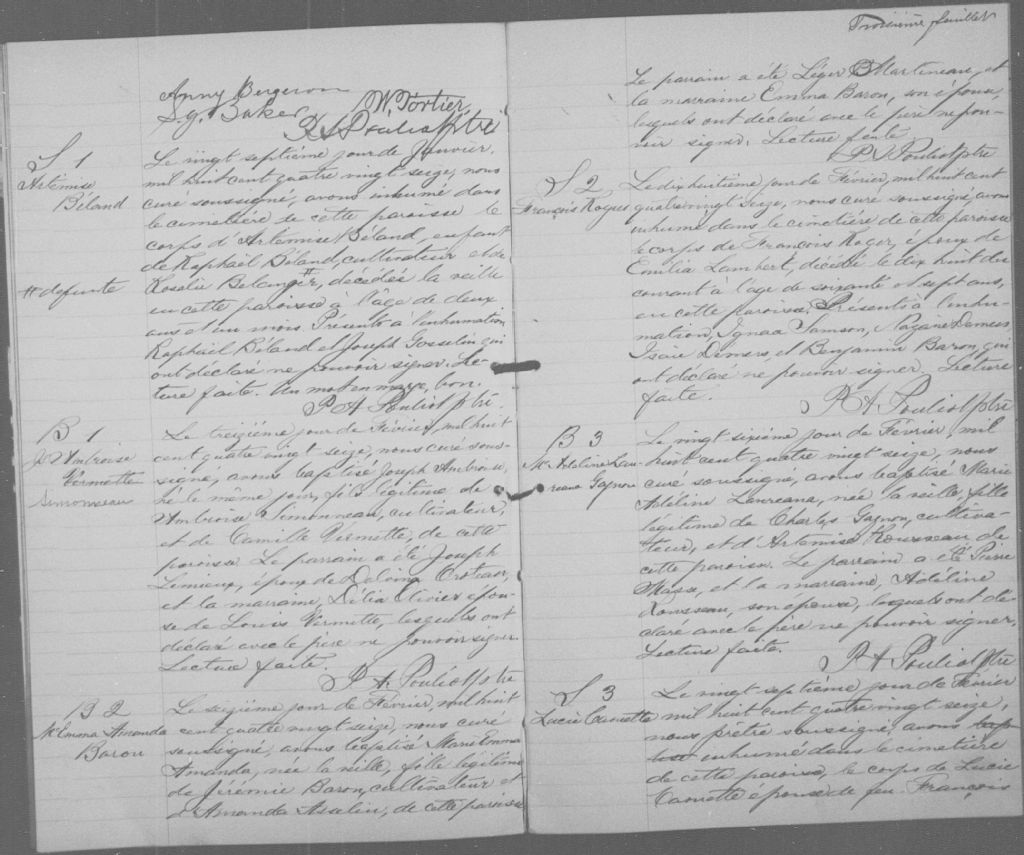 Anny Bergeron
W. Fortier
P A Pouliot Ptre
S 1
Artémise
Béland
# défunte
Le vingt septième jour de Janvier,
mil huit cent quatre vingt seize, nous
curé soussigné, avons inhumé dans
le cimetière de cette paroisse le
corps d'Artémise Béland, enfant
de Raphaël Béland, cultivateur et de
Rosalie Belanger #, décédée la veille
en cette paroisse à l'âge de deux
ans et un mois. Présents à l'inhumation,
Raphaël Béland et Joseph Gosselin qui
ont déclaré ne pouvoir signer. Lec-
ture faite. Un mot en marge, bon.
P A Pouliot Ptre.
B 1
Js Ambroise
Vermette
Simonneau
Le treizième jour de Février, mil huit
cent quatre vingt seize, nous curé sous-
signé, avons baptisé Joseph Ambroise,
né le même jour, fils légitime de
Ambroise Simonneau, cultivateur,
et de Camille Vermette, de cette
paroisse. Le parrain a été Joseph
Lemieux, époux de Delvina Croteau,
et la marraine, Délia Olivier épou-
se de Louis Vermette, lesquels ont
déclaré avec le père ne pouvoir signer.
Lecture faite.
P. A. Pouliot Ptre
B 2
Me Emma Amanda
Baron
Le seizième jour de Février, mil huit
cent quatre vingt seize, nous curé
soussigné, avons baptisé Marie Emma
Amanda, née la veille, fille légitime
de Jérémie Baron, cultivateur et
d'Amanda Asselin, de cette paroisse
Troisième feuillet
Le parrain a été Léger Martineau, et
la marraine Emma Baron, son épouse,
lesquels ont déclaré avec le père ne pou-
voir signer. Lecture faite.
P A Pouliot Ptre
S 2
François Roger
Le dix huitième jour de Février, mil huit cent
quatre vingt seize, nous curé soussigné, avons
inhumé dans le cimetière de cette paroisse
le corps de François Roger, époux de
Emilia Lambert, décédé le dix huit du
courant à l'âge de soixante et sept ans,
en cette paroisse. Présents à l'inhu-
mation, Ignace Samson, Nazaire Demers,
Isaïe Demers, et Benjamin Baron, qui
ont déclaré ne pouvoir signer. Lecture
faite.
P. A. Pouliot Ptre
B 3
Me Adéline Lau-
reana Gagnon
Le vingt sixième jour de Février, mil
huit cent quatre vingt seize, nous
curé soussigné, avons baptisé Marie
Adéline Laureana, née la veille, fille
légitime de Charles Gagnon, cultiva-
teur, et d'Artémise Rousseau de
cette paroisse. Le parrain a été Pierre
et la marraine, Adéline
Rousseau, son épouse, lesquels ont dé-
claré avec le père ne pouvoir signer.
Lecture faite.
P. A. Pouliot Ptre
S 3
Lucie Caouette
Le vingt septième jour de Février
mil huit cent quatre vingt seize,
nous prêtre soussigné, avons bap
tisé inhumé dans le cimetière
de cette paroisse, le corps de Lucie
Caouette épouse de feu François